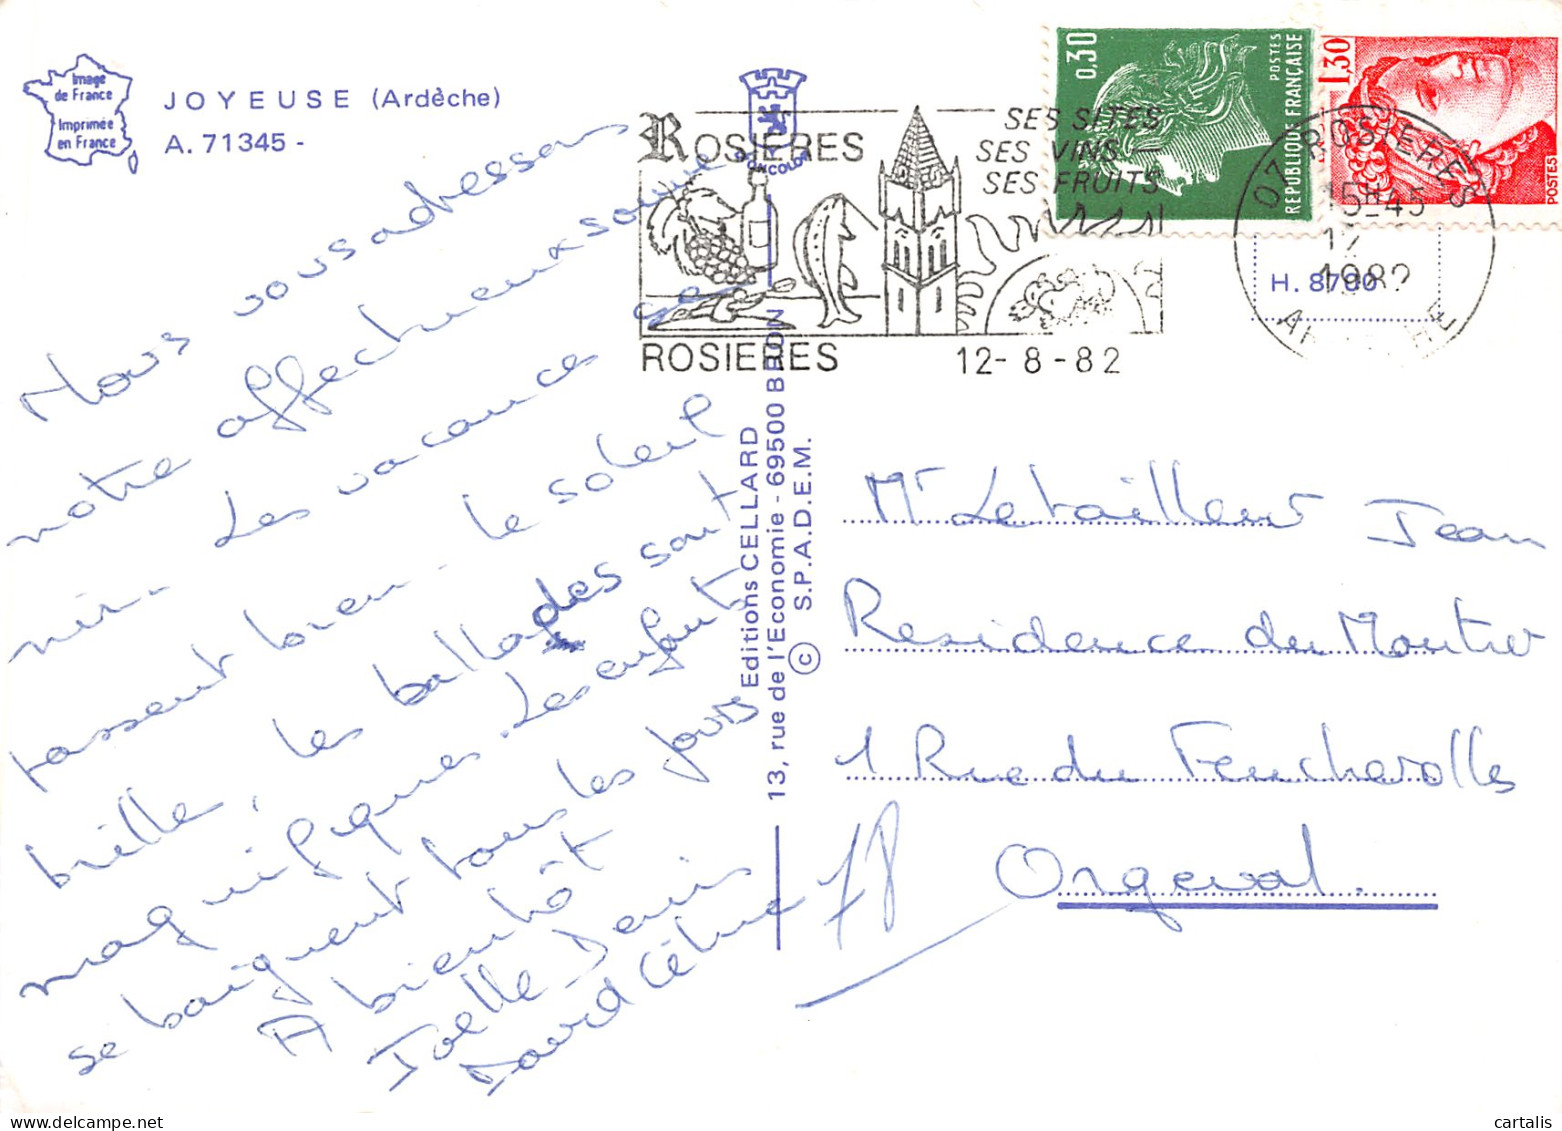 Image
de France
Imprimée
en France
JOYEUSE (Ardèche)
A. 71345 -
Nous vous adressons
notre affectueux souve
nir. Les vacances
passent bien. le soleil
brille, les ballades sont
magnifiques. Les enfants
se baignent tous les jours
A bientôt
Joelle Denis
David Céline
COMBICOLOR
Editions CELLARD
13, rue de l'Economie - 69500 BRON
© S.P.A.D.E.M.
ROSIERES
SES SITES
SES VINS —
SES FRUITS
ROSIERES
12-8-82
0,30
POSTES
REPUBLIQUE FRANÇAISE
1,30
POSTES
07 ROSIERES
15H45
12
1982
ARDECHE
H. 8780
Mr Letailleur Jean
Residence du Moutier
1 Rue du Feucherolles
78 Orgeval.
cartalis